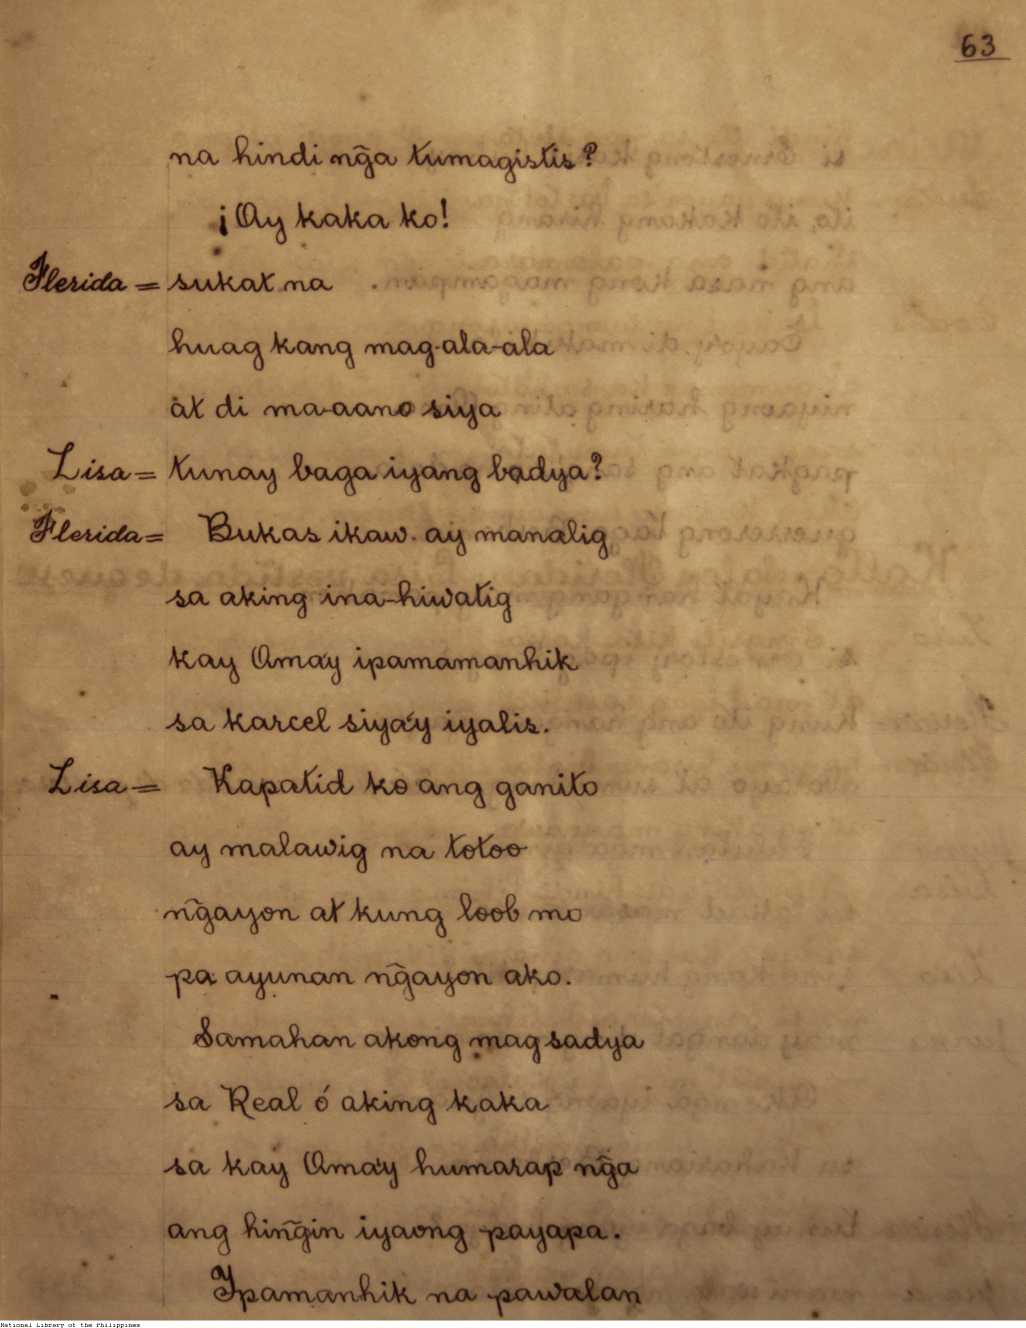 63
na hindi ng̃a tumagistis?
¡Ay kaka ko!
Flerida = sukat na
huag kang mag-ala-ala
at di ma-aano siya
Lisa = tunay baga iyang badya?
Flerida = Bukas ikaw ay manalig
sa aking ina-hiwatig
kay Ama'y ipamamanhik
sa karcel siya'y iyalis.
Lisa = Kapatid ko ang ganito
ay malawig na totoo
ng̃ayon at kung loob mo
pa ayunan ng̃ayon ako.
Samahan akong mag sadya
sa Real ó aking kaka
sa kay Ama'y humarap ng̃a
ang hing̃in iyaong payapa.
Ipamanhik na pawalan
National Library of the Philippines